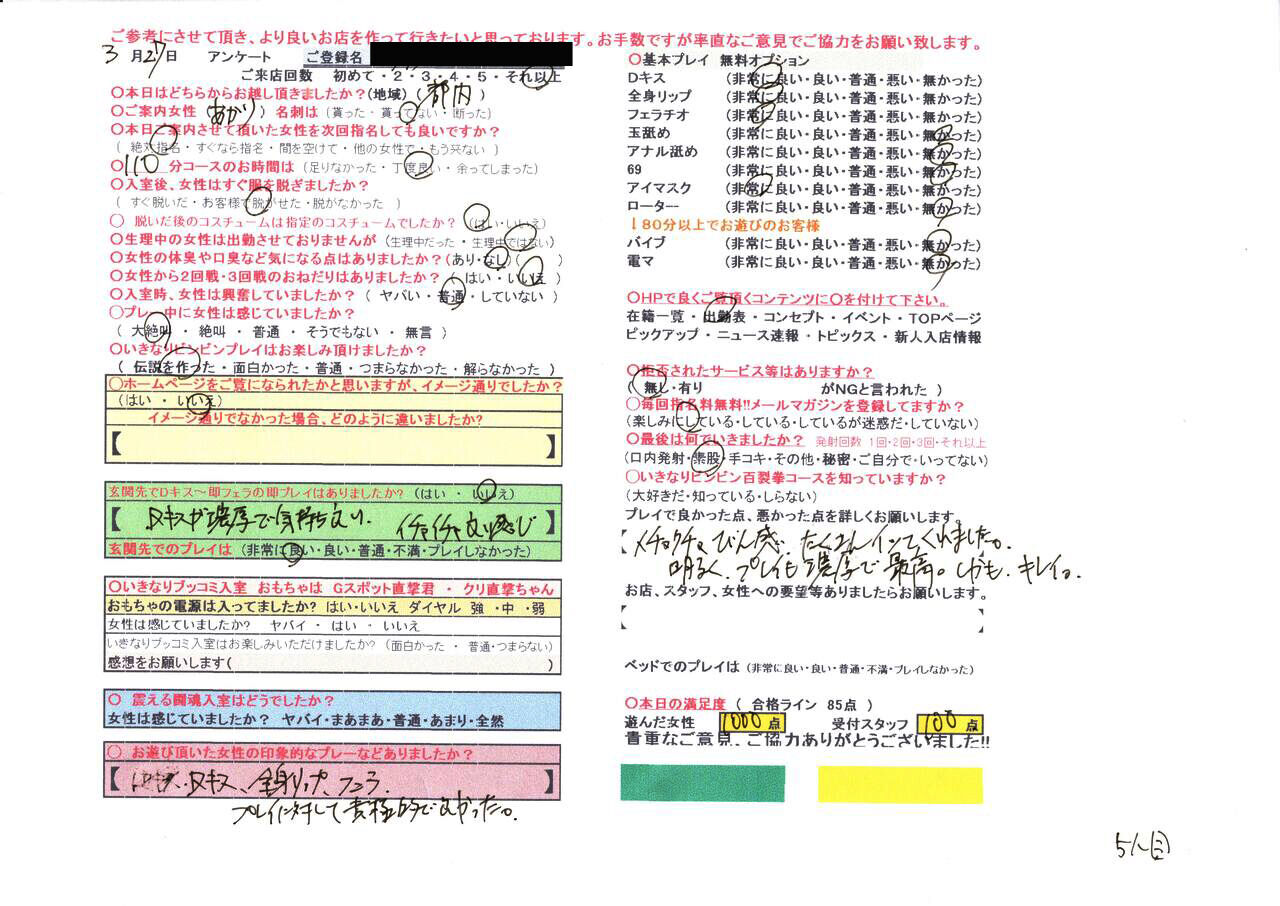 ご参考にさせて頂き、より良いお店を作って行きたいと思っております。お手数ですが率直なご意見でご協力をお願い致します。
3月27日 アンケート ご登録名
ご来店回数 初めて・2・3・4・5・それ以上
〇本日はどちらからお越し頂きましたか？(地域)( 都内 )
〇ご案内女性 (あかり) 名刺は (貰った・貰ってない・断った)
〇本日ご案内させて頂いた女性を次回指名しても良いですか？
( 絶対指名・すぐなら指名・間を空けて・他の女性で・もう来ない )
〇110分コースのお時間は (足りなかった・丁度良い・余ってしまった)
〇入室後、女性はすぐ服を脱ぎましたか？
( すぐ脱いだ・お客様で脱がせた・脱がなかった )
〇 脱いだ後のコスチュームは指定のコスチュームでしたか？ (はい・いいえ)
〇生理中の女性は出勤させておりませんが (生理中だった・生理中ではない)
〇女性の体臭や口臭など気になる点はありましたか？(あり・なし)( )
〇女性から2回戦・3回戦のおねだりはありましたか？ ( はい・いいえ )
〇入室時、女性は興奮していましたか？ ( ヤバい・普通・していない )
〇プレー中に女性は感じていましたか？
( 大絶叫 ・ 絶叫 ・ 普通 ・ そうでもない ・ 無言 )
〇いきなりビンビンプレイはお楽しみ頂けましたか？
( 伝説を作った・面白かった・普通・つまらなかった・解らなかった )
〇ホームページをご覧になられたかと思いますが、イメージ通りでしたか？
(はい ・ いいえ)
イメージ通りでなかった場合、どのように違いましたか？
【 】
玄関先でDキス～即フェラの即プレイはありましたか？ (はい ・ いいえ)
【 Dキスが濃厚で気持ちよい. イチャイチャ良い感じ 】
玄関先でのプレイは (非常に良い・良い・普通・不満・プレイしなかった)
〇いきなりブッコミ入室 おもちゃは Gスポット直撃君 ・ クリ直撃ちゃん
おもちゃの電源は入ってましたか？ はい・いいえ ダイヤル 強 ・中 ・弱
女性は感じていましたか？ ヤバイ ・ はい ・ いいえ
いきなりブッコミ入室はお楽しみいただけましたか？ (面白かった ・ 普通・つまらない)
感想をお願いします( )
〇 震える闘魂入室はどうでしたか？
女性は感じていましたか？ ヤバイ・まあまあ・普通・あまり・全然
〇 お遊び頂いた女性の印象的なプレーなどありましたか？
【 Dキス、全身リップ、フェラ 】
プレイに対して責極的で良かった。
〇基本プレイ 無料オプション
Dキス (非常に良い・良い・普通・悪い・無かった)
全身リップ (非常に良い・良い・普通・悪い・無かった)
フェラチオ (非常に良い・良い・普通・悪い・無かった)
玉舐め (非常に良い・良い・普通・悪い・無かった)
アナル舐め (非常に良い・良い・普通・悪い・無かった)
69 (非常に良い・良い・普通・悪い・無かった)
アイマスク (非常に良い・良い・普通・悪い・無かった)
ローター- (非常に良い・良い・普通・悪い・無かった)
↓80分以上でお遊びのお客様
バイブ (非常に良い・良い・普通・悪い・無かった)
電マ (非常に良い・良い・普通・悪い・無かった)
〇HPで良くご覧頂くコンテンツに〇を付けて下さい。
在籍一覧・出勤表・コンセプト・イベント・TOPページ
ピックアップ・ニュース速報・トピックス・新人入店情報
〇拒否されたサービス等はありますか？
( 無し・有り がNGと言われた )
〇毎回指名料無料!!メールマガジンを登録してますか？
(楽しみにしている・している・しているが迷惑だ・していない)
〇最後は何でいきましたか？ 発射回数 1回・2回・3回・それ以上
(口内発射・素股・手コキ・その他・秘密・ご自分で・いってない)
〇いきなりビンビン百裂拳コースを知っていますか？
(大好きだ・知っている・しらない)
プレイで良かった点、悪かった点を詳しくお願いします。
メチャクチャ、びん感、たくさんイッてくれました。
明るく、プレイも濃厚で最高。しかも、キレイ。
お店、スタッフ、女性への要望等ありましたらお願いします。
ベッドでのプレイは (非常に良い・良い・普通・不満・プレイしなかった)
〇本日の満足度 ( 合格ライン 85点 )
遊んだ女性 1000点 受付スタッフ 100点
貴重なご意見、ご協力ありがとうございました!!